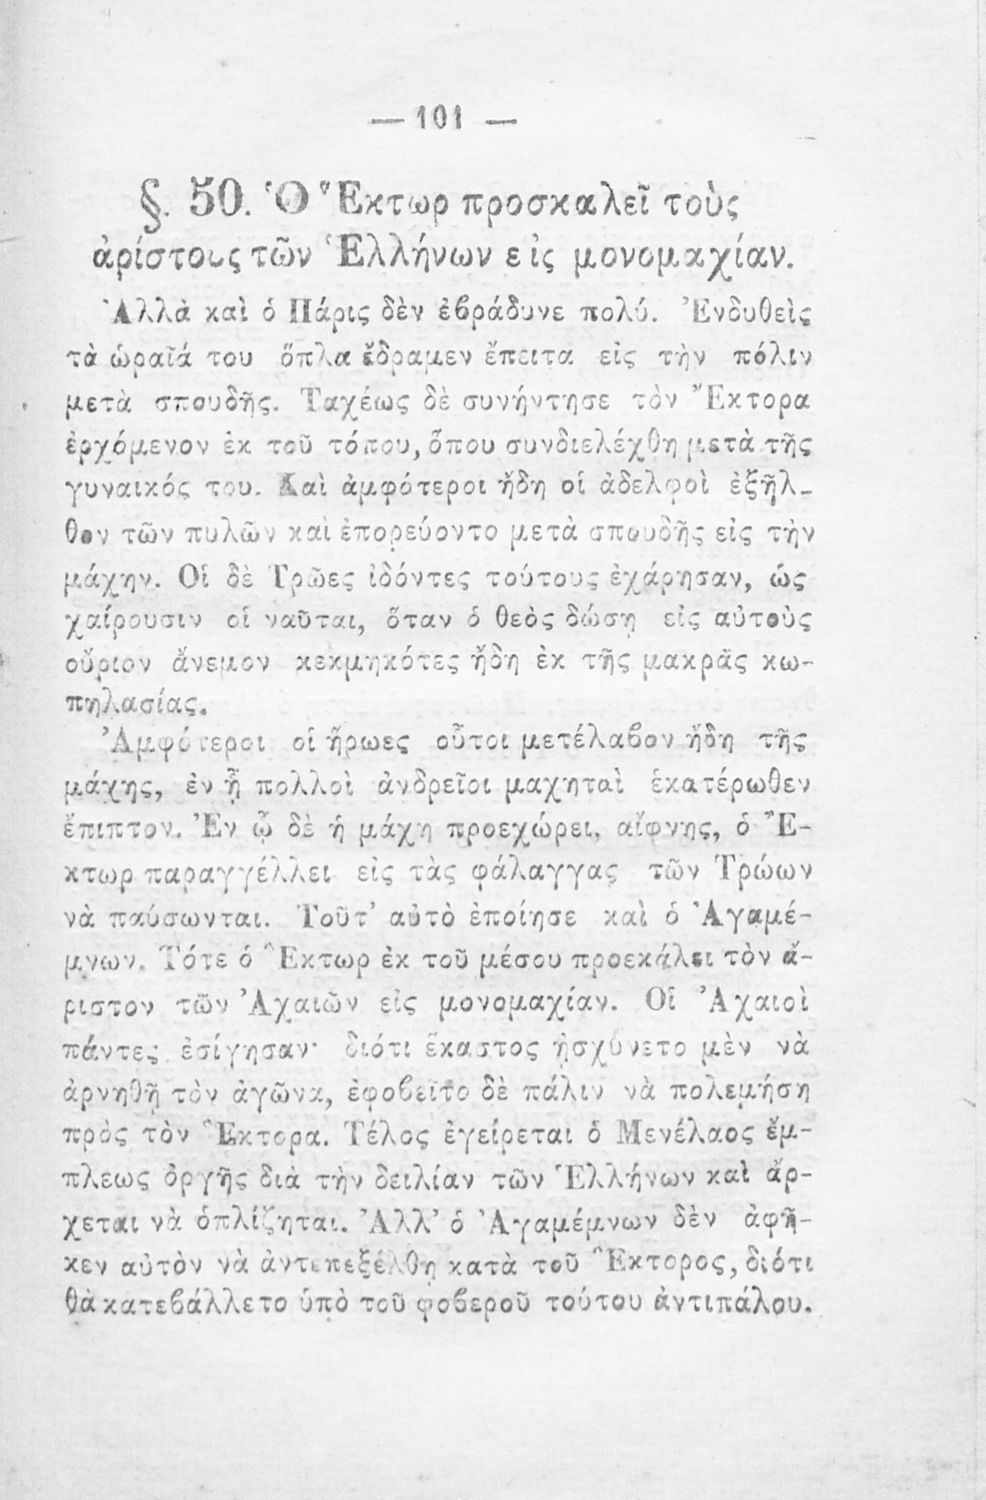 — 101 —
§. 50. Ὁ Ἕκτωρ προσκαλεῖ τοὺς
ἀρίστους τῶν Ἑλλήνων εἰς μονομαχίαν.
Ἀλλὰ καὶ ὁ Πάρις δὲν ἐβράδυνε πολύ. Ἐνδυθεὶς
τὰ ὡραῖά του ὅπλα ἔδραμεν ἔπειτα εἰς τὴν πόλιν
μετὰ σπουδῆς. Ταχέως δὲ συνήντησε τὸν Ἕκτορα
ἐρχόμενον ἐκ τοῦ τόπου, ὅπου συνδιελέχθη μετὰ τῆς
γυναικός του. Καὶ ἀμφότεροι ἤδη οἱ ἀδελφοὶ ἐξῆλ-
θον τῶν πυλῶν καὶ ἐπορεύοντο μετὰ σπουδῆς εἰς τὴν
μάχην. Οἱ δὲ Τρῶες ἰδόντες τούτους ἐχάρησαν, ὡς
χαίρουσιν οἱ ναῦται, ὅταν ὁ θεὸς δώσῃ εἰς αὐτοὺς
οὔριον ἄνεμον κεκμηκότες ἤδη ἐκ τῆς μακρᾶς κω-
πηλασίας.
Ἀμφότεροι οἱ ἥρωες οὗτοι μετέλαβον ἤδη τῆς
μάχης, ἐν ᾗ πολλοὶ ἀνδρεῖοι μαχηταὶ ἑκατέρωθεν
ἔπιπτον. Ἐν ᾧ δὲ ἡ μάχη προεχώρει, αἴφνης, ὁ Ἕ-
κτωρ παραγγέλλει εἰς τὰς φάλαγγας τῶν Τρώων
νὰ παύσωνται. Τοῦτ' αὐτὸ ἐποίησε καὶ ὁ Ἀγαμέ-
μνων. Τότε ὁ Ἕκτωρ ἐκ τοῦ μέσου προεκάλει τὸν ἄ-
ριστον τῶν Ἀχαιῶν εἰς μονομαχίαν. Οἱ Ἀχαιοὶ
πάντες ἐσίγησαν· διότι ἕκαστος ᾐσχύνετο μὲν νὰ
ἀρνηθῇ τὸν ἀγῶνα, ἐφοβεῖτο δὲ πάλιν νὰ πολεμήσῃ
πρὸς τὸν Ἕκτορα. Τέλος ἐγείρεται ὁ Μενέλαος ἔμ-
πλεως ὀργῆς διὰ τὴν δειλίαν τῶν Ἑλλήνων καὶ ἄρ-
χεται νὰ ὁπλίζηται. Ἀλλ' ὁ Ἀγαμέμνων δὲν ἀφῆ-
κεν αὐτὸν νὰ ἀντεπεξέλθῃ κατὰ τοῦ Ἕκτορος, διότι
θὰ κατεβάλλετο ὑπὸ τοῦ φοβεροῦ τούτου ἀντιπάλου.